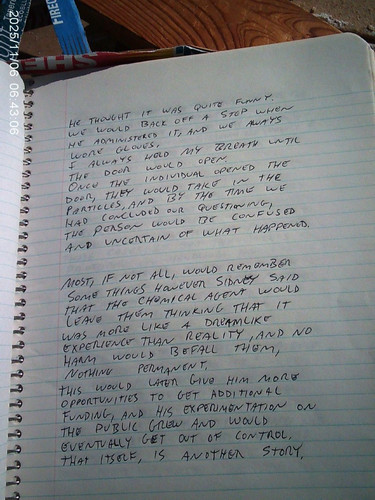 2025/11/06 06:43:06
FIREL
EHS
HE THOUGHT IT WAS QUITE FUNNY.
WE WOULD BACK OFF A STEP WHEN
HE ADMINISTERED IT, AND WE AWAYS
WORE GLOVES,
I ALWAYS HELD MY BREATH UNTIL
THE DOOR WOULD OPEN.
ONCE THE INDIVIDUAL OPENED THE
DOOR, THEY WOULD TAKE IN THE
PARTICLES, AND BY THE TIME WE
HAD CONCLUDED OUR QUESTIONING,
THE PERSON WOULD BE CONFUSED
AND UNCERTAIN OF WHAT HAPPENED.
MOST, IF NOT ALL, WOULD REMEMBER
SOME THINGS HOWEVER SIDNEY SAID
THAT THE CHEMICAL AGENT WOULD
LEAVE THEM THINKING THAT IT
WAS MORE LIKE A DREAMLIKE
EXPERIENCE THAN REALITY, AND NO
HARM WOULD BEFALL THEM,
NOTHING PERMANENT.
THIS WOULD LATER GIVE HIM MORE
OPPORTUNITIES TO GET ADDITIONAL
FUNDING, AND HIS EXPERIMENTATION ON
THE PUBLIC GREW AND WOULD
EVENTUALLY GET OUT OF CONTROL,
THAT ITSELF, IS ANOTHER STORY.